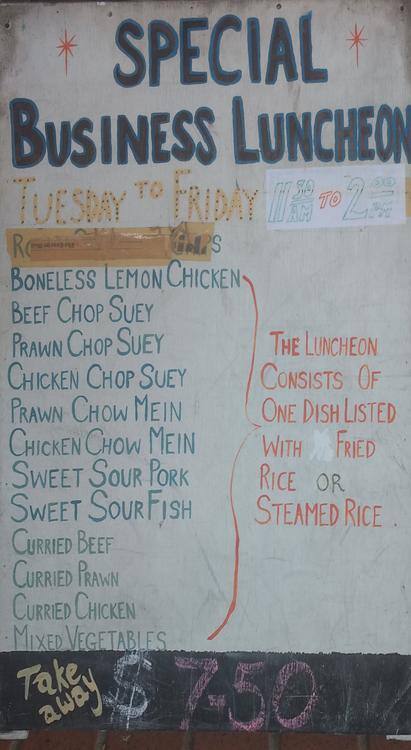 SPECIAL
BUSINESS LUNCHEON
TUESDAY TO FRIDAY 11 30 AM TO 2 00 PM
BONELESS LEMON CHICKEN
BEEF CHOP SUEY
PRAWN CHOP SUEY
CHICKEN CHOP SUEY
PRAWN CHOW MEIN
CHICKEN CHOW MEIN
SWEET SOUR PORK
SWEET SOUR FISH
CURRIED BEEF
CURRIED PRAWN
CURRIED CHICKEN
MIXED VEGETABLES
THE LUNCHEON
CONSISTS OF
ONE DISH LISTED
WITH FRIED
RICE OR
STEAMED RICE
Take away $ 7-50